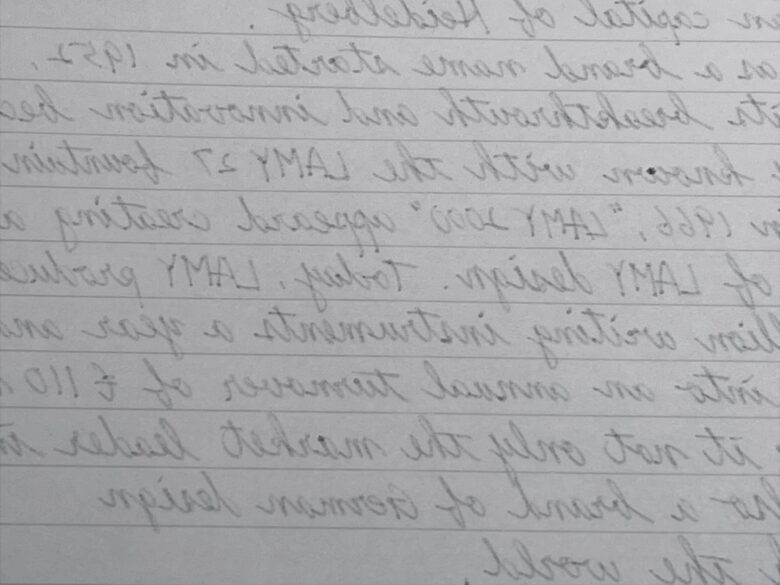 capital of Heidelberg.
as a brand name started in 1952.
its breakthrouth and innovation
known with the LAMY 27 fountain
1966, "LAMY 2000" appeard creating a
of LAMY design. Today, LAMY produce
writing instruments a year
into an annual turnover of € 110
it not only the market leader
a brand of German design
the world.